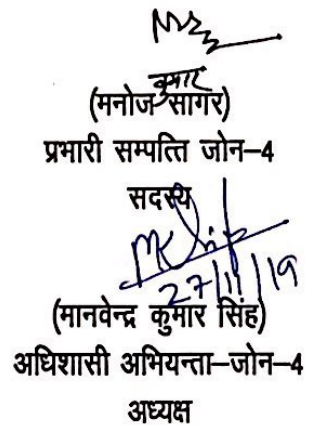 कुमार
(मनोज सागर)
प्रभारी सम्पत्ति जोन–4
सदस्य
27/11/19
(मानवेन्द्र कुमार सिंह)
अधिशासी अभियन्ता–जोन–4
अध्यक्ष